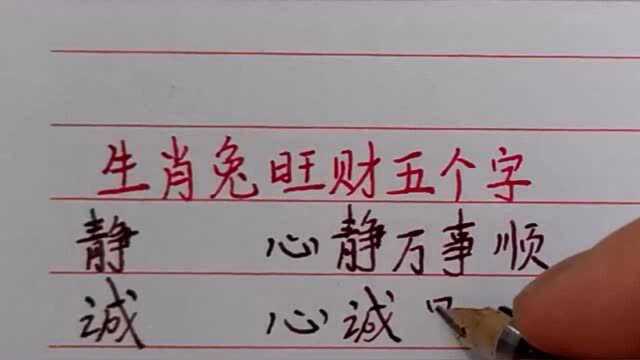 生肖兔旺财五个字
静 心静万事顺
诚 心诚